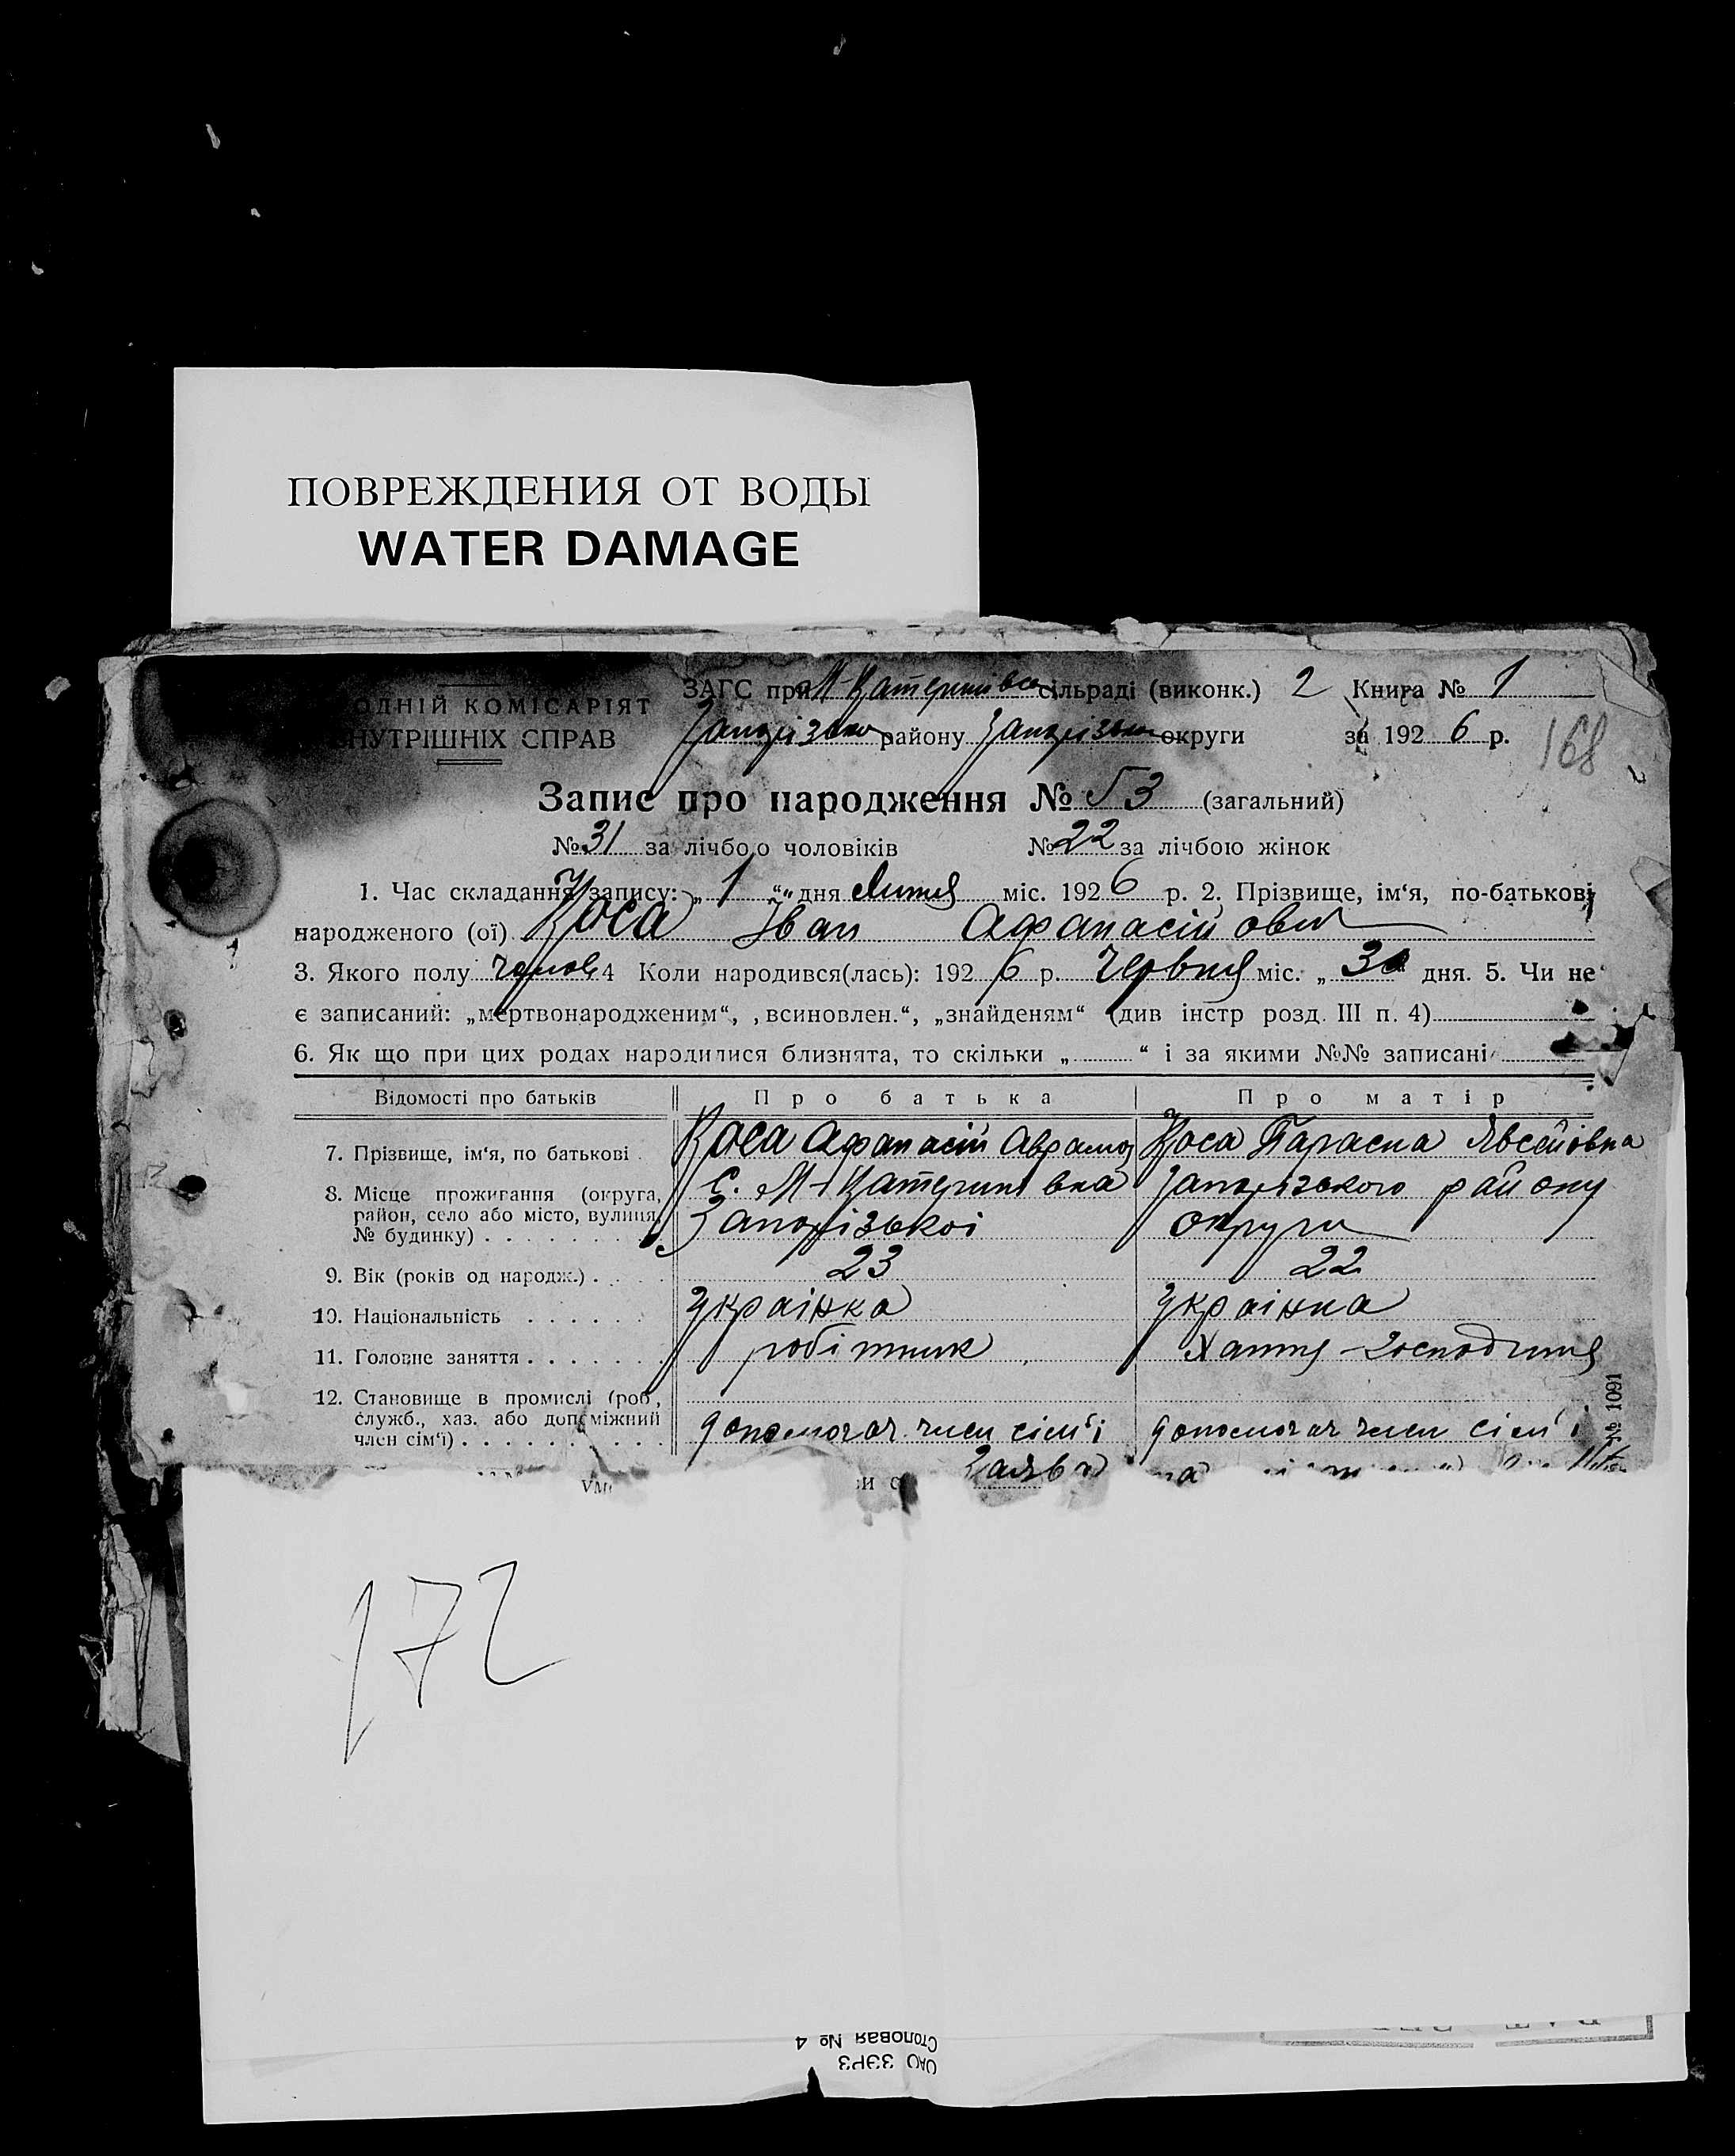 ПОВРЕЖДЕНИЯ ОТ ВОДЫ
WATER DAMAGE
ОДНІЙ КОМІСАРІЯТ
НУТРІШНІХ СПРАВ
ЗАГС при М-Катеринівсь сільраді (виконк.) 2 Книга № 1
Запорізько району Запорізько округи за 1926 р.
168
Запис про народження № 53 (загальний)
№ 31 за лічбою чоловіків № 22 за лічбою жінок
1. Час складання запису: „ 1 “ дня Липня міс. 1926 р. 2. Прізвище, ім‘я, по-батькові
народженого (ої) Коса Іван Афанасійович
3. Якого полу чолов. 4 Коли народився(лась): 1926 р. Червня міс. „ 30 дня. 5. Чи не
є записаний: „мертвонародженим“, „всиновлен.“, „знайденям“ (див інстр розд. III п. 4)
6. Як що при цих родах народилися близнята, то скільки „ “ і за якими №№ записані
Відомості про батьків Про батька Про матір
7. Прізвище, ім‘я, по батькові Коса Афанасій Аврамов Коса Параска Явсейовна
8. Місце проживання (округа, район, село або місто, вулиця, № будинку) с. М-Катеринівка Запорізького району
Запорізької округи
9. Вік (років од народж.) 23 22
10. Національність Українка Українка
11. Головне заняття робітник Хатня-господиня
12. Становище в промислі (роб., служб., хаз. або допоміжний член сім‘ї) допомогач член сім‘ї допомогач член сім‘ї
Заява
№ 1091
172
ОАО ЗЭРЗ
Столовая № 4